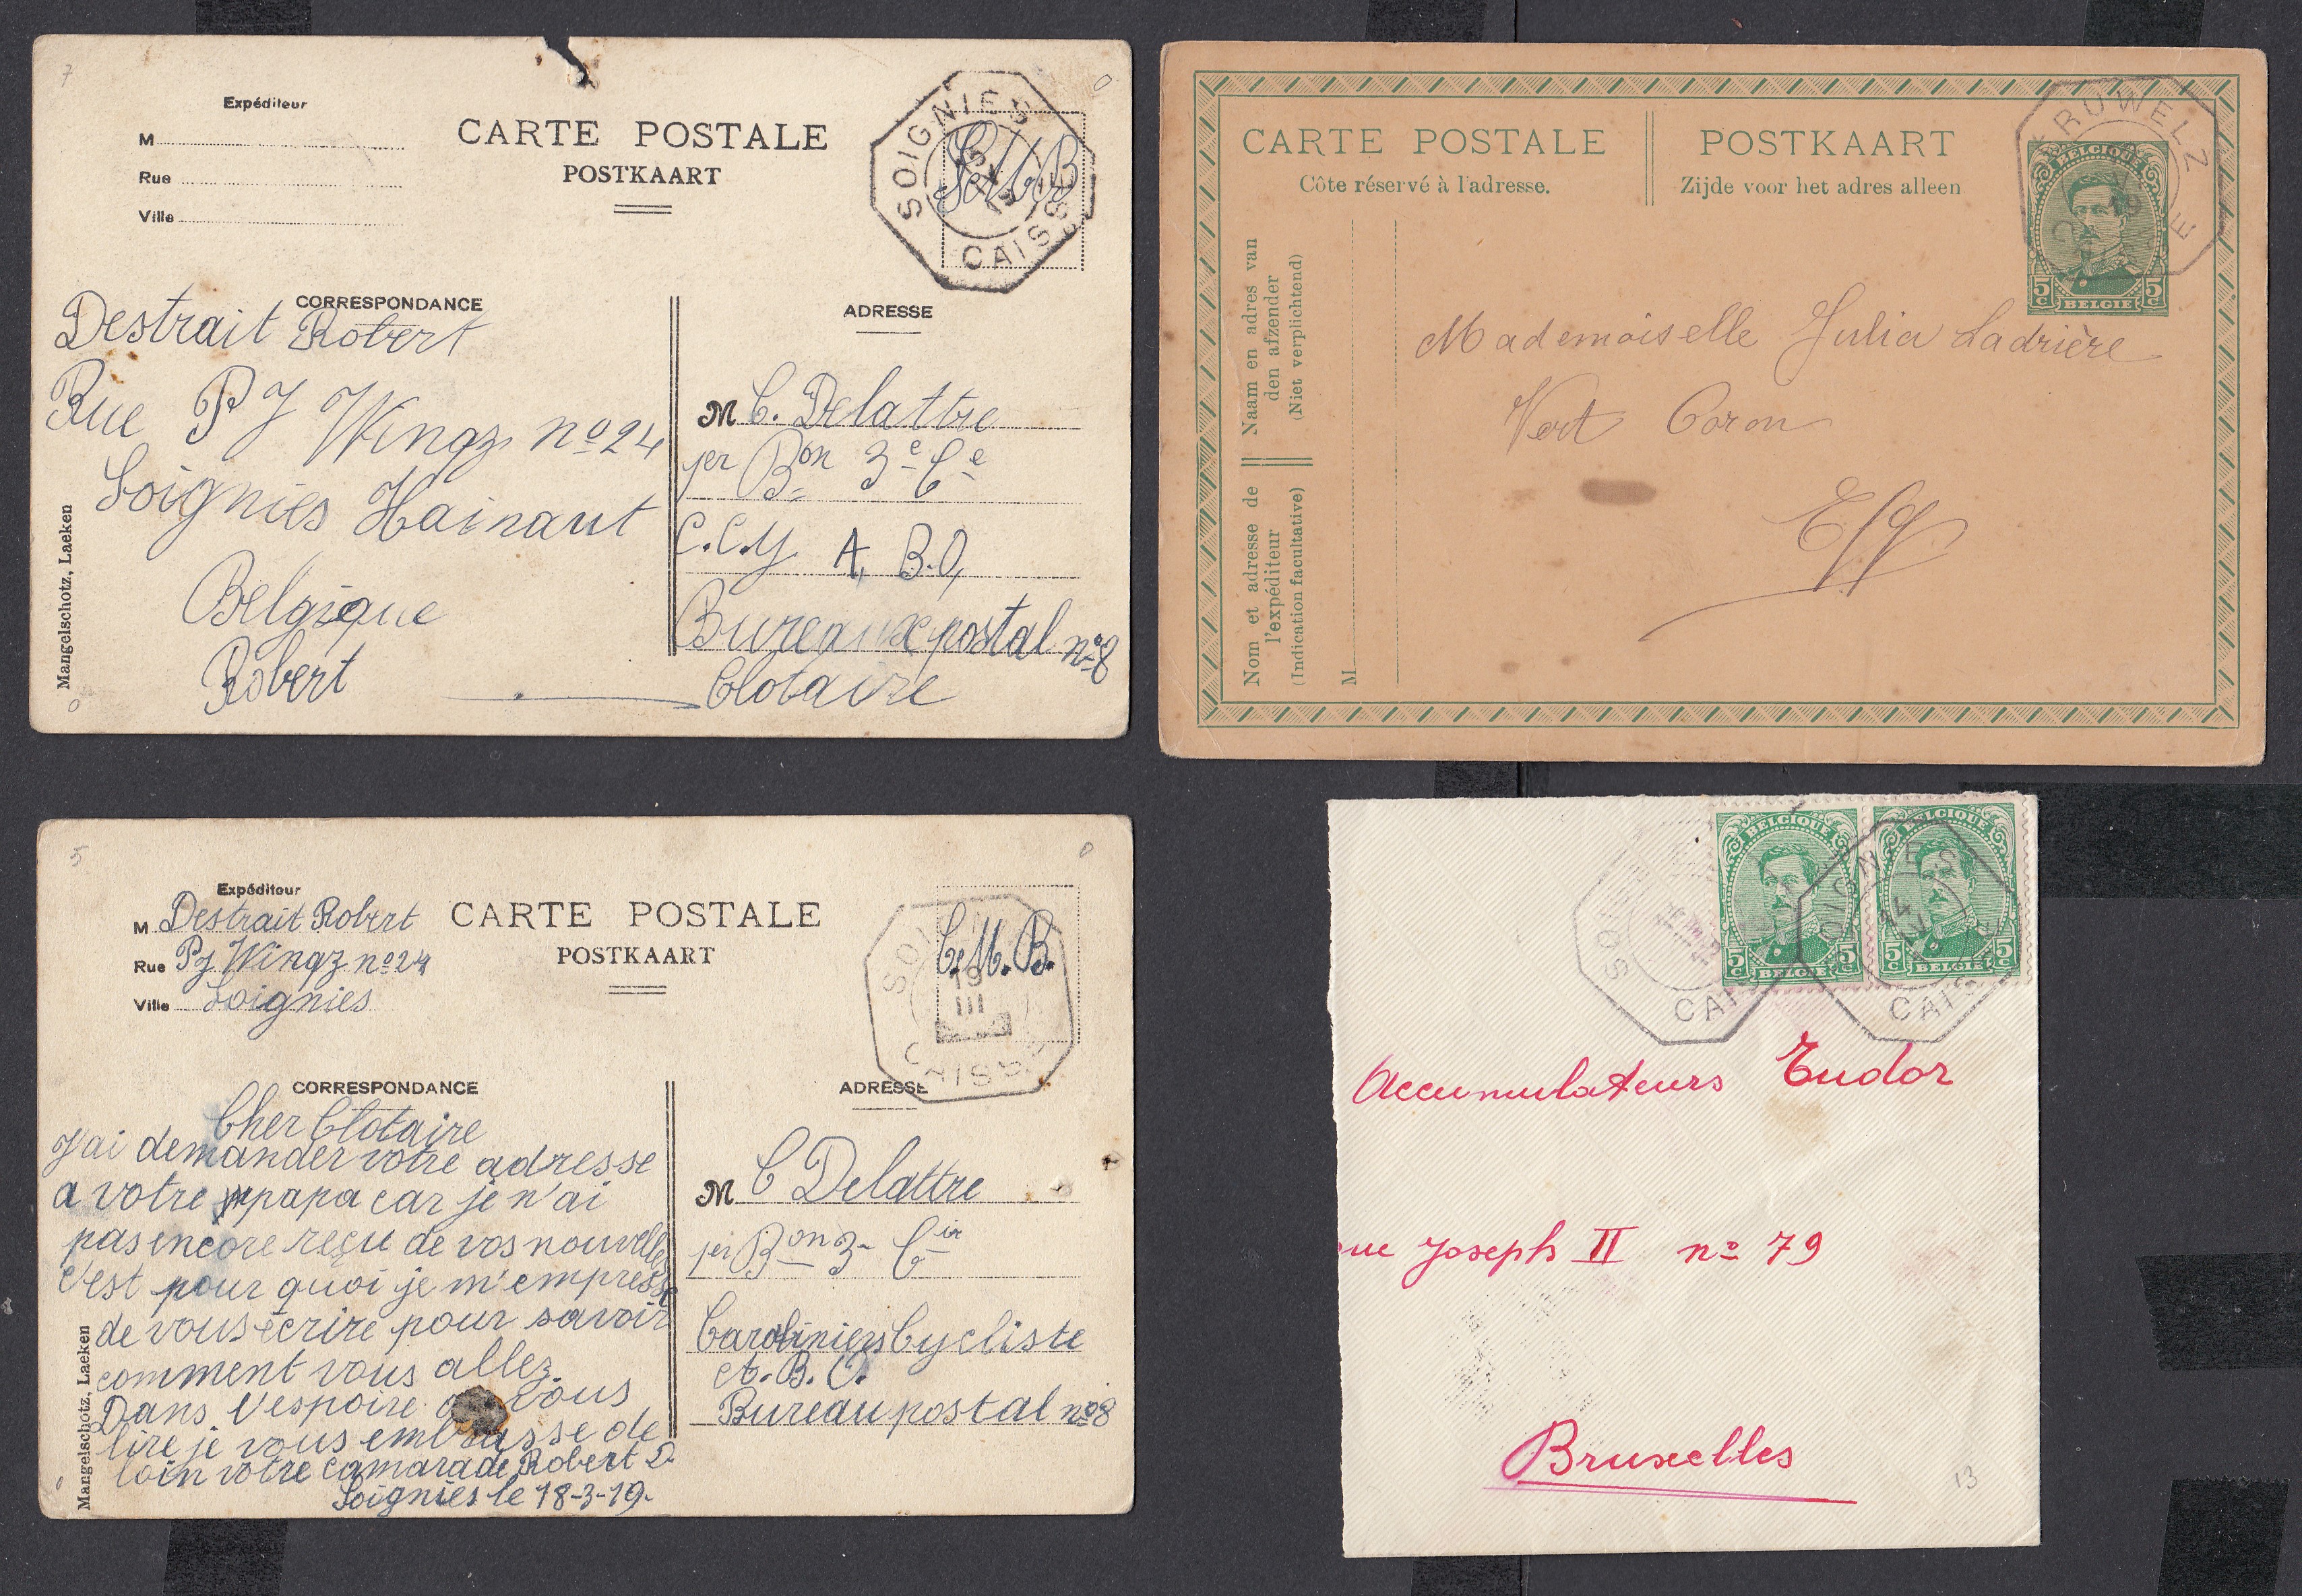 7
Expéditeur
M
Rue
Ville
CARTE POSTALE
POSTKAART
SOIGNIES
CAISSE
19
CORRESPONDANCE
Destrait Robert
Rue PJ Wingz nº 24
Soignies Hainaut
Belgique
Robert
Mangelschotz, Laeken
ADRESSE
M C. Delattre
1er Bon 3e Cie
C.C.y. A, B.O,
Bureaux postal nº8
Clotaire
CARTE POSTALE
Côte réservé à l'adresse.
POSTKAART
Zijde voor het adres alleen
BELGIQUE
5c 5c
BELGIE
Naam en adres van
den afzender
(Niet verplichtend)
Nom et adresse de
l'expéditeur
(Indication facultative)
M
Mademoiselle Julia Ladrière
Vert Coron
E/V
5
Expéditeur
M Destrait Robert
Rue PJ Wingz nº 24
Ville Soignies
CARTE POSTALE
POSTKAART
C.M.B.
19
III
CAISSE
CORRESPONDANCE
Cher Clotaire
J'ai demander votre adresse
a votre papa car je n'ai
pas encore reçu de vos nouvelles
c'est pour quoi je m'empresse
de vous écrire pour savoir
comment vous allez.
Dans l'espoire vous
lire je vous embrasse de
loin votre camarade Robert D.
Soignies le 18-3-19.
Mangelschotz, Laeken
ADRESSE
M C Delattre
1er Bon 3e Cie
Carabiniers Cycliste
A. B. O.
Bureau postal nº8
BELGIQUE
5c 5c
BELGIE
BELGIQUE
5c 5c
BELGIE
Accumulateurs Tudor
ue Joseph II nº 79
Bruxelles
13